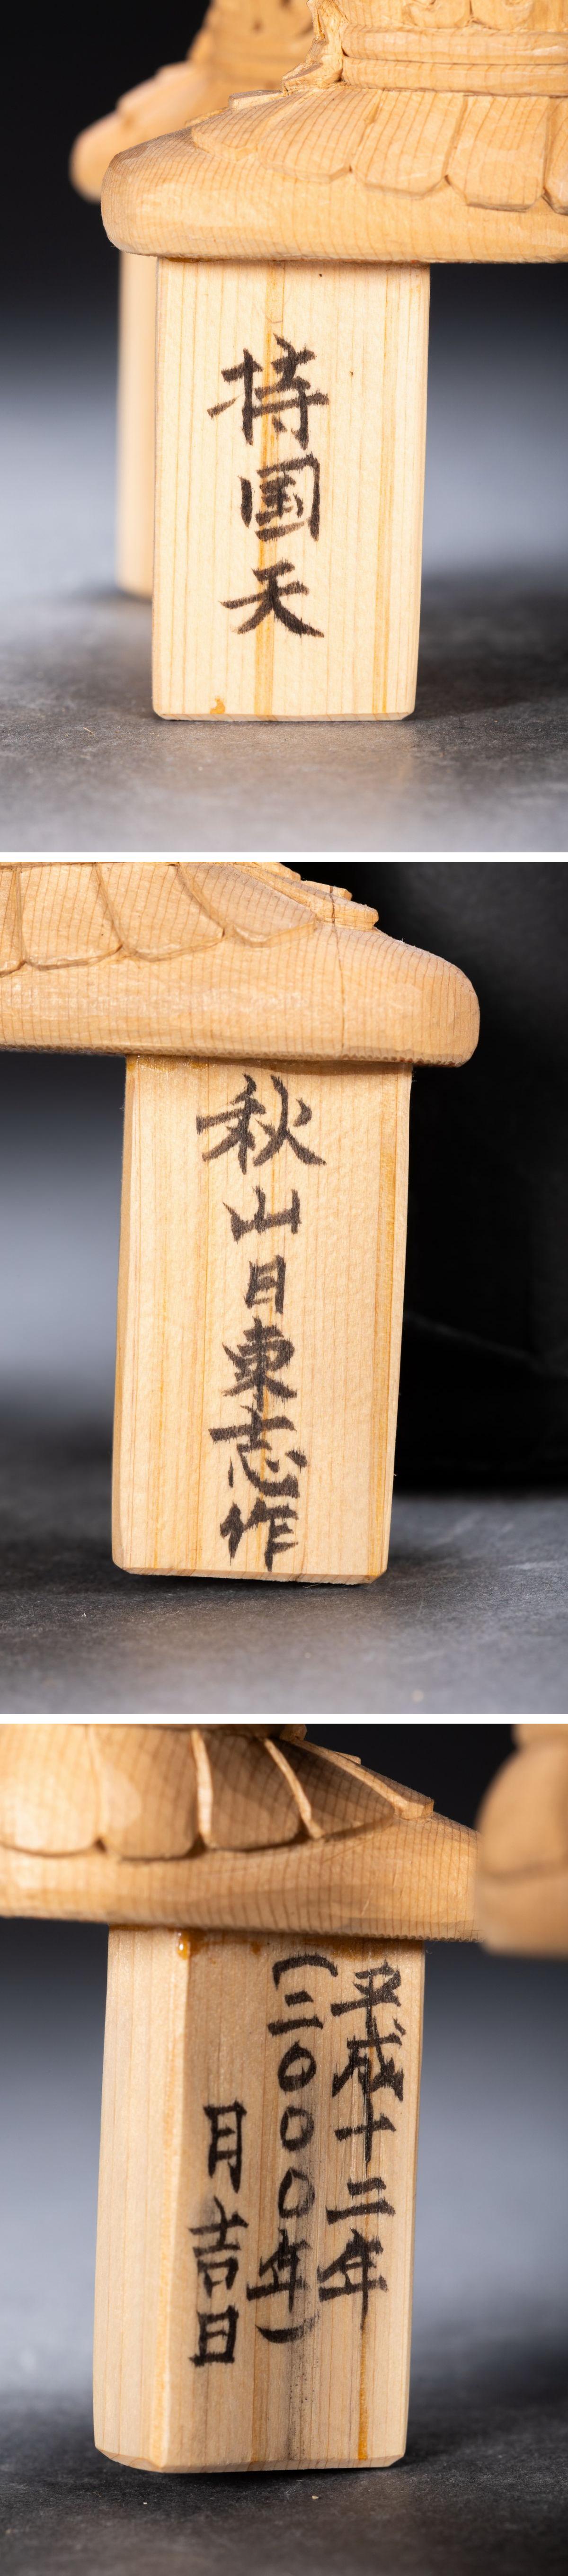 持国天
秋山日東志作
平成十二年
(二〇〇〇年)
月吉日